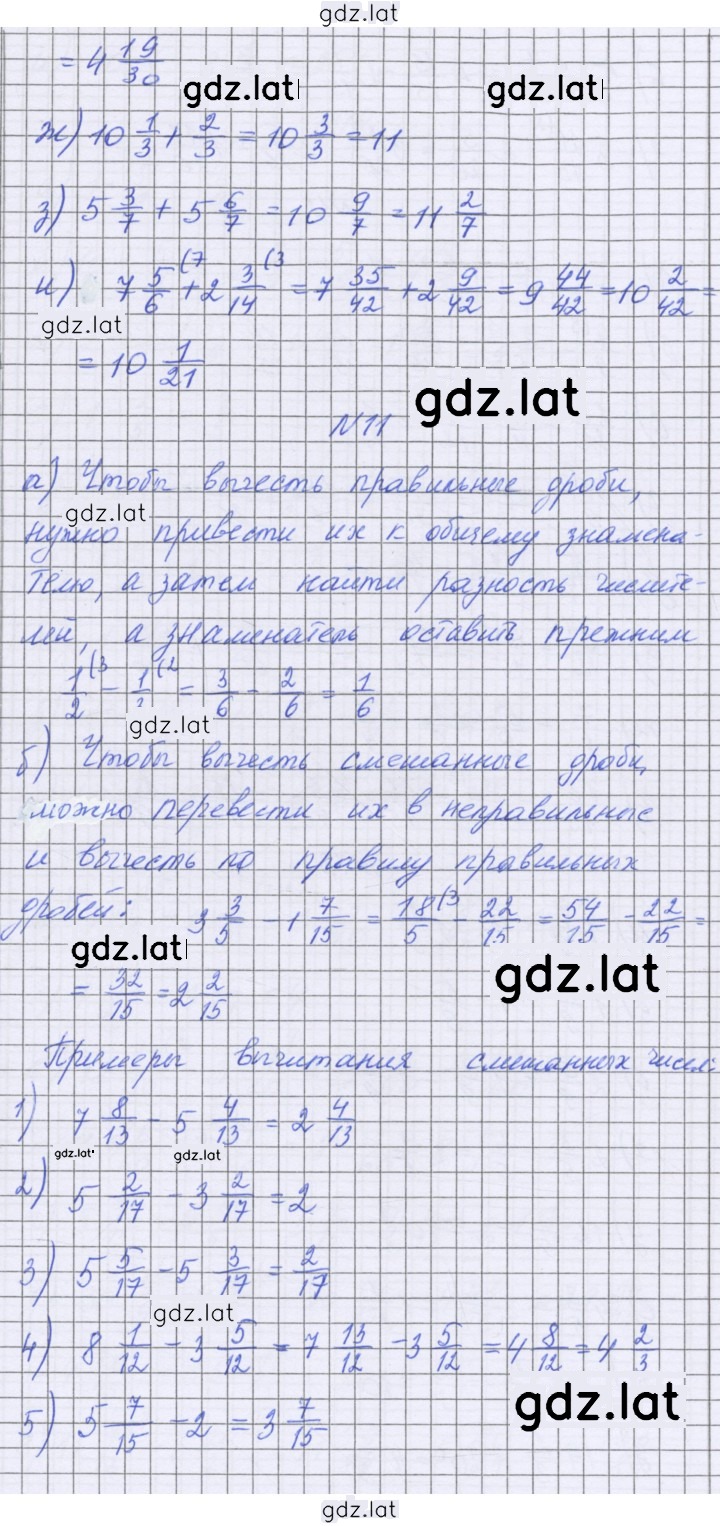 gdz.lat
= 4 19/30
gdz.lat gdz.lat
ж) 10 1/3 + 2/3 = 10 3/3 = 11
з) 5 3/7 + 5 6/7 = 10 9/7 = 11 2/7
и) 7 5/6 (7 + 2 3/14 (3 = 7 35/42 + 2 9/42 = 9 44/42 = 10 2/42 =
gdz.lat
= 10 1/21
gdz.lat
N11
а) Чтобы вычесть правильные дроби,
gdz.lat
нужно привести их к общему знамена-
телю, а затем найти разность числите-
лей, а знаменатель оставить прежним
1/2 (3 - 1/ (2 = 3/6 - 2/6 = 1/6
gdz.lat
б) Чтобы вычесть смешанные дроби,
можно перевести их в неправильные
и вычесть по правилу правильных
дробей: 3 3/5 - 1 7/15 = 18/5 (3 - 22/15 = 54/15 - 22/15 =
gdz.lat gdz.lat
= 32/15 = 2 2/15
Примеры вычитания смешанных чисел:
1) 7 8/13 - 5 4/13 = 2 4/13
gdz.lat gdz.lat
2) 5 2/17 - 3 2/17 = 2
3) 5 5/17 - 5 3/17 = 2/17
gdz.lat
4) 8 1/12 - 3 5/12 = 7 13/12 - 3 5/12 = 4 8/12 = 4 2/3
gdz.lat
5) 5 7/15 - 2 = 3 7/15
gdz.lat